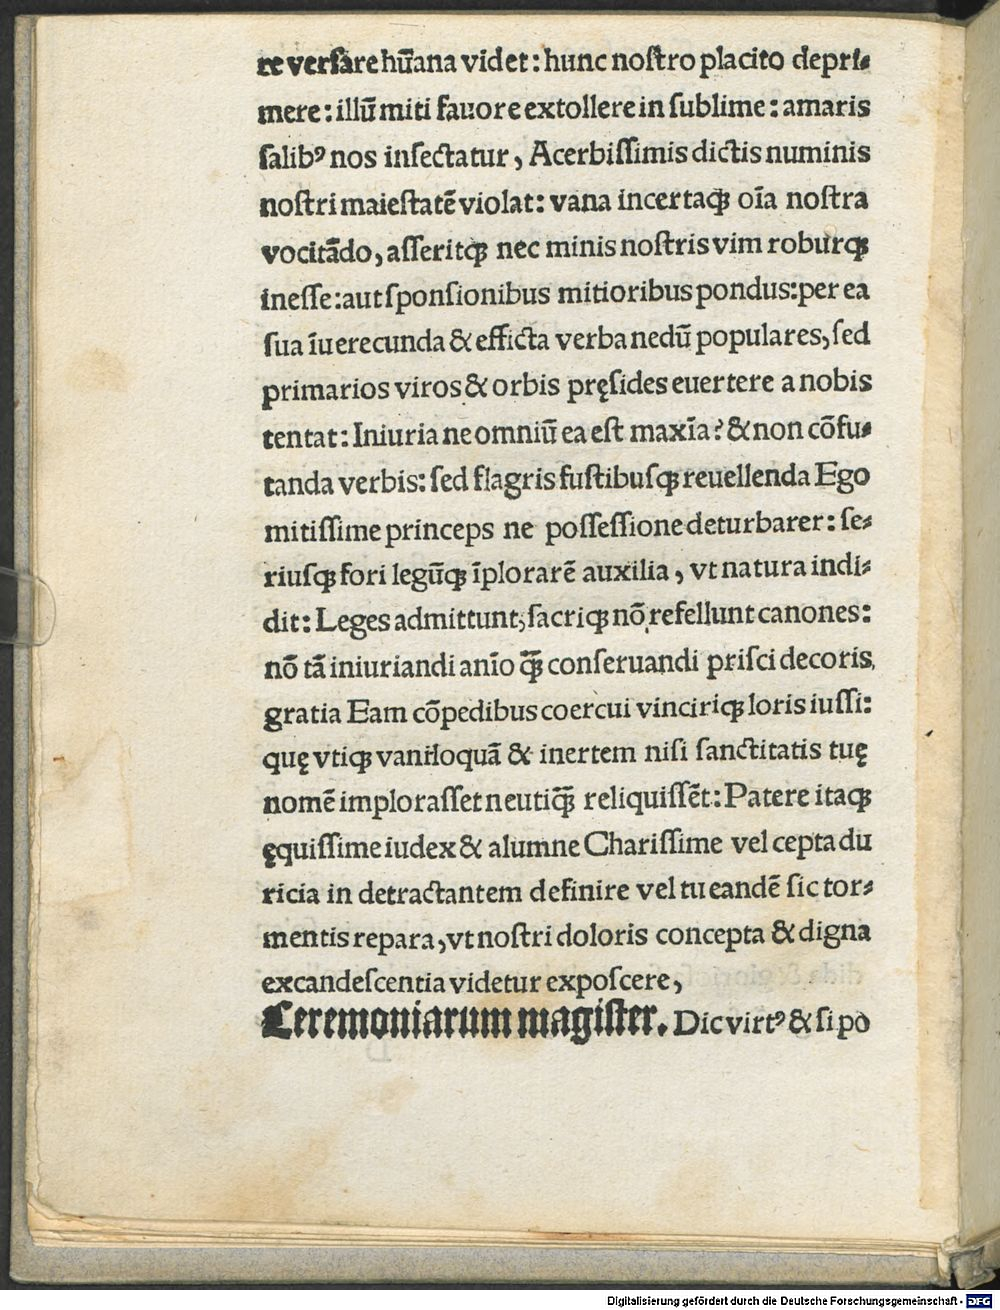 re verſare hūana videt: hunc noſtro placito depri⸗
mere: illū miti fauore extollere in ſublime: amaris
ſalibꝰ nos inſectatur, Acerbiſſimis dictis numinis
noſtri maieſtatē violat: vana incertaqꝫ oīa noſtra
vocitādo, aſſeritqꝫ nec minis noſtris vim roburqꝫ
ineſſe: aut ſponſionibus mitioribus pondus: per ea
ſua īuerecunda & efficta verba nedū populares, ſed
primarios viros & orbis pręſides euertere a nobis
tentat: Iniuria ne omniū ea eſt maxīa? & non cōfu⸗
tanda verbis: ſed flagris fuſtibuſqꝫ reuellenda Ego
mitiſſime princeps ne poſſeſſione deturbarer: ſe⸗
riuſqꝫ fori legūqꝫ īplorarē auxilia, vt natura indi⸗
dit: Leges admittunt, ſacriqꝫ nō refellunt canones:
nō tā iniuriandi anīo qꝫ̄ conſeruandi priſci decoris,
gratia Eam cōpedibus coercui vinciriqꝫ loris iuſſi:
quę vtiqꝫ vaniloquā & inertem niſi ſanctitatis tuę
nomē imploraſſet neutiqꝫ̄ reliquiſſēt: Patere itaqꝫ
ęquiſſime iudex & alumne Chariſſime vel cepta du
ricia in detractantem definire vel tu eandē ſic tor⸗
mentis repara, vt noſtri doloris concepta & digna
excandeſcentia videtur expoſcere,
Ceremoniarum magiſter. Dic virtꝰ & ſi po
Digitalisierung gefördert durch die Deutsche Forschungsgemeinschaft - DFG